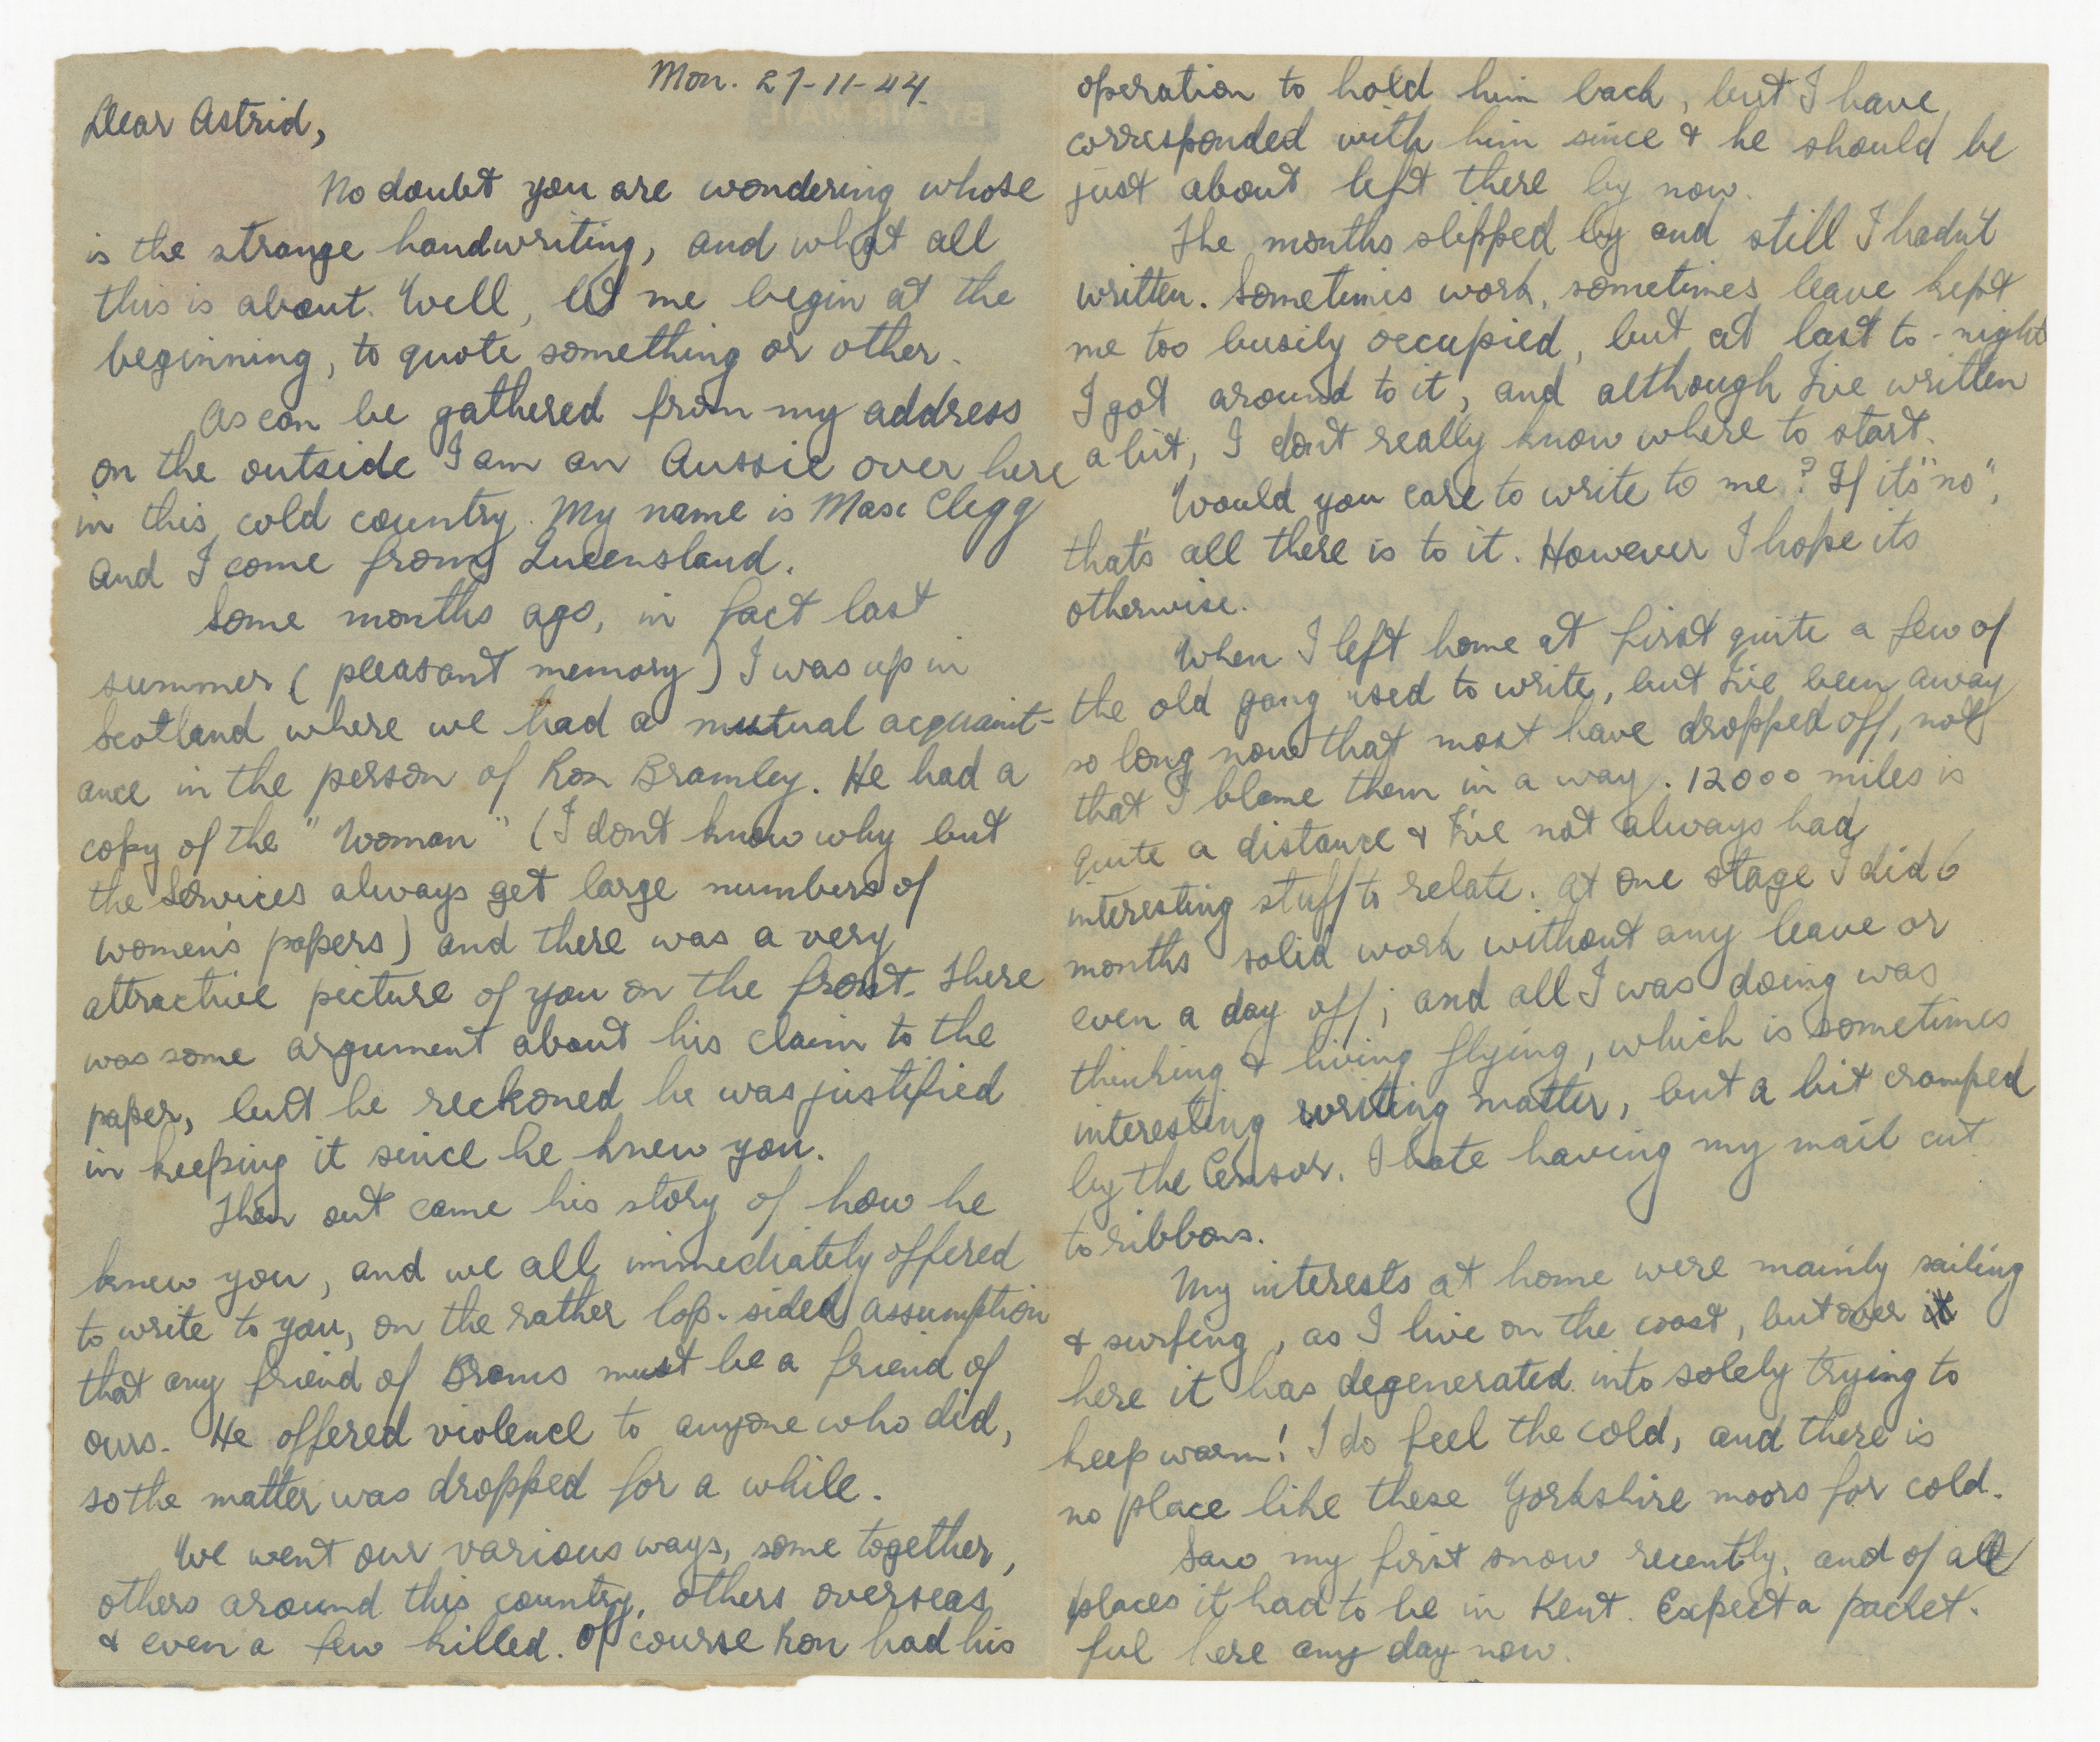 Mon. 27-11-44.
Dear Astrid,
No doubt you are wondering whose
is the strange handwriting, and what all
this is about. Well, let me begin at the
beginning, to quote something or other.
As can be gathered from my address
on the outside I am an Aussie over here
in this cold country. My name is Max Clegg
and I come from Queensland.
Some months ago, in fact last
summer (pleasant memory) I was up in
Scotland where we had a mutual acquaint-
ance in the person of Ron Bramley. He had a
copy of the "Woman" (I dont know why but
the Services always get large numbers of
women's papers) and there was a very
attractive picture of you on the front. There
was some argument about his claim to the
paper, but he reckoned he was justified
in keeping it since he knew you.
Then out came his story of how he
knew you, and we all immediately offered
to write to you, on the rather lop-sided assumption
that any friend of Brams must be a friend of
ours. He offered violence to anyone who did,
so the matter was dropped for a while.
We went our various ways, some together,
others around this country, others overseas
& even a few killed. Of course Ron had his
operation to hold him back, but I have
corresponded with him since & he should be
just about left there by now.
The months slipped by and still I hadn't
written. Sometimes work, sometimes leave kept
me too busily occupied, but at last to-night
I got around to it, and although I've written
a bit, I don't really know where to start.
Would you care to write to me? If it's "no",
thats all there is to it. However I hope its
otherwise.
When I left home at first quite a few of
the old gang used to write, but I've been away
so long now that most have dropped off, not
that I blame them in a way. 12000 miles is
quite a distance & I've not always had
interesting stuff to relate. At one stage I did 6
months solid work without any leave or
even a day off; and all I was doing was
thinking & living flying, which is sometimes
interesting writing matter, but a bit cramped
by the Censor. I hate having my mail cut
to ribbons.
My interests at home were mainly sailing
& surfing, as I live on the coast, but over
here it has degenerated into solely trying to
keep warm! I do feel the cold, and there is
no place like these Yorkshire moors for cold.
Saw my first snow recently, and of all
places it had to be in Kent. Expect a packet-
ful here any day now.